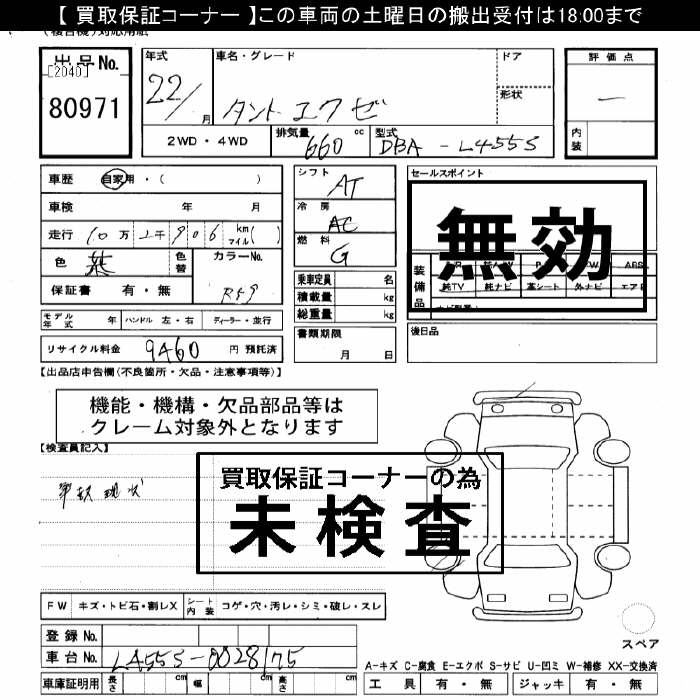 【 買取保証コーナー 】この車両の土曜日の搬出受付は18:00まで
出品No.
[2040]
80971
年式
22/
月
車名・グレード
タント エクゼ
ドア
形状
評価点
—
内装
2WD・4WD
排気量
660
cc
型式
DBA - L455S
車歴
自家用・( )
車検
年
月
走行
10万
2千
906
km
マイル( )
色
紫
色替
カラーNo.
R59
保証書
有・無
シフト
AT
冷房
AC
燃料
G
乗車定員
名
積載量
kg
総重量
kg
セールスポイント
無効
装備品
純TV
純ナビ
革シート
外ナビ
エアB
ABS
モデル年式
年
ハンドル
左・右
ディーラー・並行
リサイクル料金
9460
円
預託済
書類期限
月
日
後日品
【出品店申告欄(不良箇所・欠品・注意事項等)】
機能・機構・欠品部品等は
クレーム対象外となります
【検査員記入】
事故現状
買取保証コーナーの為
未検査
FW
キズ・トビ石・割レX
シート内装
コゲ・穴・汚レ・シミ・破レ・スレ
登録No.
車台No.
L455S-0028175
車庫証明用
長さ
cm
幅
cm
高さ
cm
スペア
A-キズ C-腐食 E-エクボ S-サビ U-凹ミ W-補修 XX-交換済
工具
有・無
ジャッキ
有・無